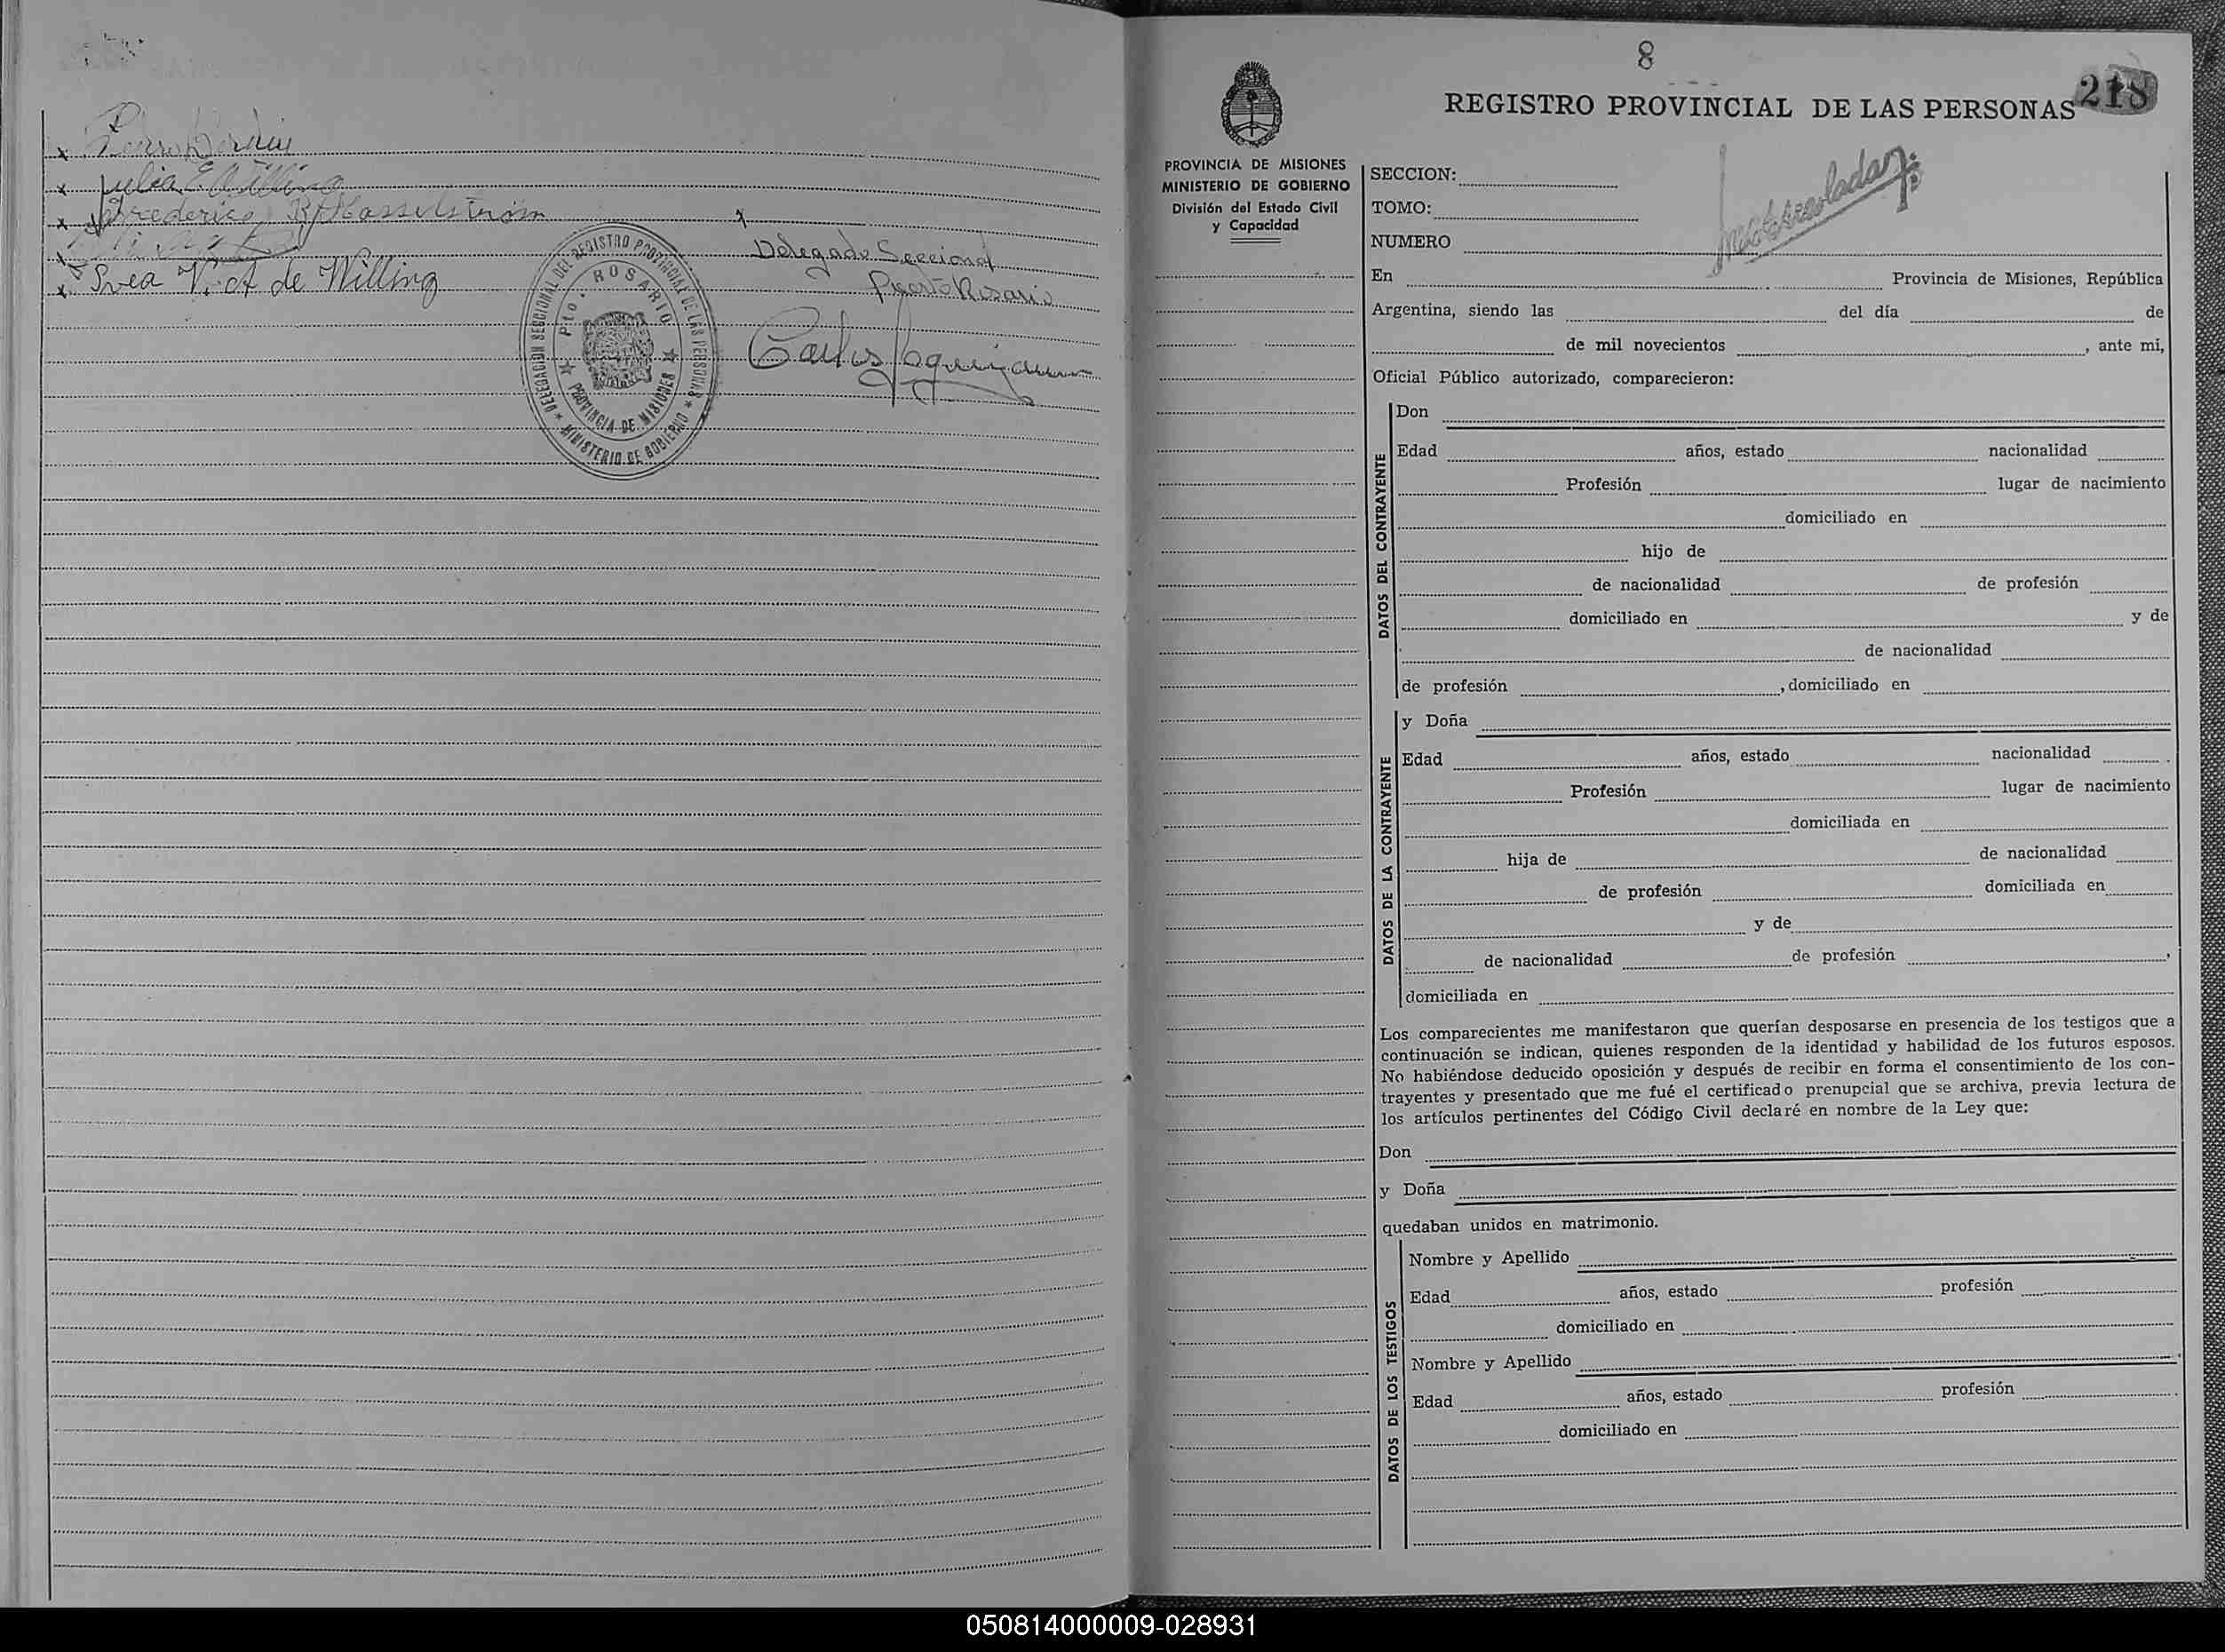 Julia E. Willing
Frederico R. Hasselström
Svea V. A. de Willing
DELEGACION SECCIONAL DEL REGISTRO PROVINCIAL DE LAS PERSONAS
* MINISTERIO DE GOBIERNO *
Pto. ROSARIO
PROVINCIA DE MISIONES
Delegado Seccional
Puerto Rosario
Carlos
8
REGISTRO PROVINCIAL DE LAS PERSONAS
218
PROVINCIA DE MISIONES
MINISTERIO DE GOBIERNO
División del Estado Civil
y Capacidad
SECCION:
TOMO:
NUMERO
En Provincia de Misiones, República
Argentina, siendo las del día de
de mil novecientos , ante mi,
Oficial Público autorizado, comparecieron:
DATOS DEL CONTRAYENTE
Don
Edad años, estado nacionalidad
Profesión lugar de nacimiento
domiciliado en
hijo de
de nacionalidad de profesión
domiciliado en y de
de nacionalidad
de profesión , domiciliado en
DATOS DE LA CONTRAYENTE
y Doña
Edad años, estado nacionalidad
Profesión lugar de nacimiento
domiciliada en
hija de de nacionalidad
de profesión domiciliada en
y de
de nacionalidad de profesión ,
domiciliada en
Los comparecientes me manifestaron que querían desposarse en presencia de los testigos que a
continuación se indican, quienes responden de la identidad y habilidad de los futuros esposos.
No habiéndose deducido oposición y después de recibir en forma el consentimiento de los con-
trayentes y presentado que me fué el certificado prenupcial que se archiva, previa lectura de
los artículos pertinentes del Código Civil declaré en nombre de la Ley que:
Don
y Doña
quedaban unidos en matrimonio.
DATOS DE LOS TESTIGOS
Nombre y Apellido
Edad años, estado profesión
domiciliado en
Nombre y Apellido
Edad años, estado profesión
domiciliado en
050814000009-028931